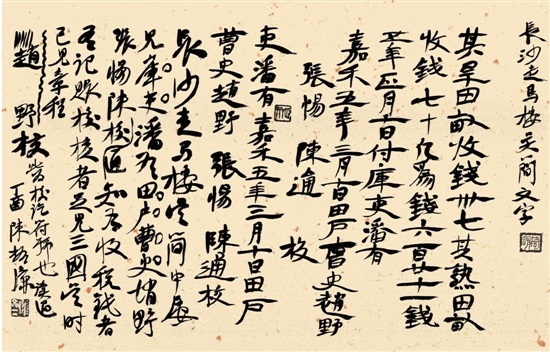 長沙走馬樓吴簡文字
其旱田畝收錢卅七其熟田畝
收錢七十凡爲錢六百廿一錢
五年三月日付庫吏潘有
嘉禾五年三月十日田戶曹史趙野
張惕 陳通 校
吏潘有嘉禾五年三月十日田戶
曹史趙野 張惕 陳通校
長沙走馬樓吴簡中屡
見庫吏潘有田戶曹史趙野
張惕陳校知有收稅錢者
有記賬校核者足見三國吴時
已見章程
趙野校 符號也
丁酉陳松長